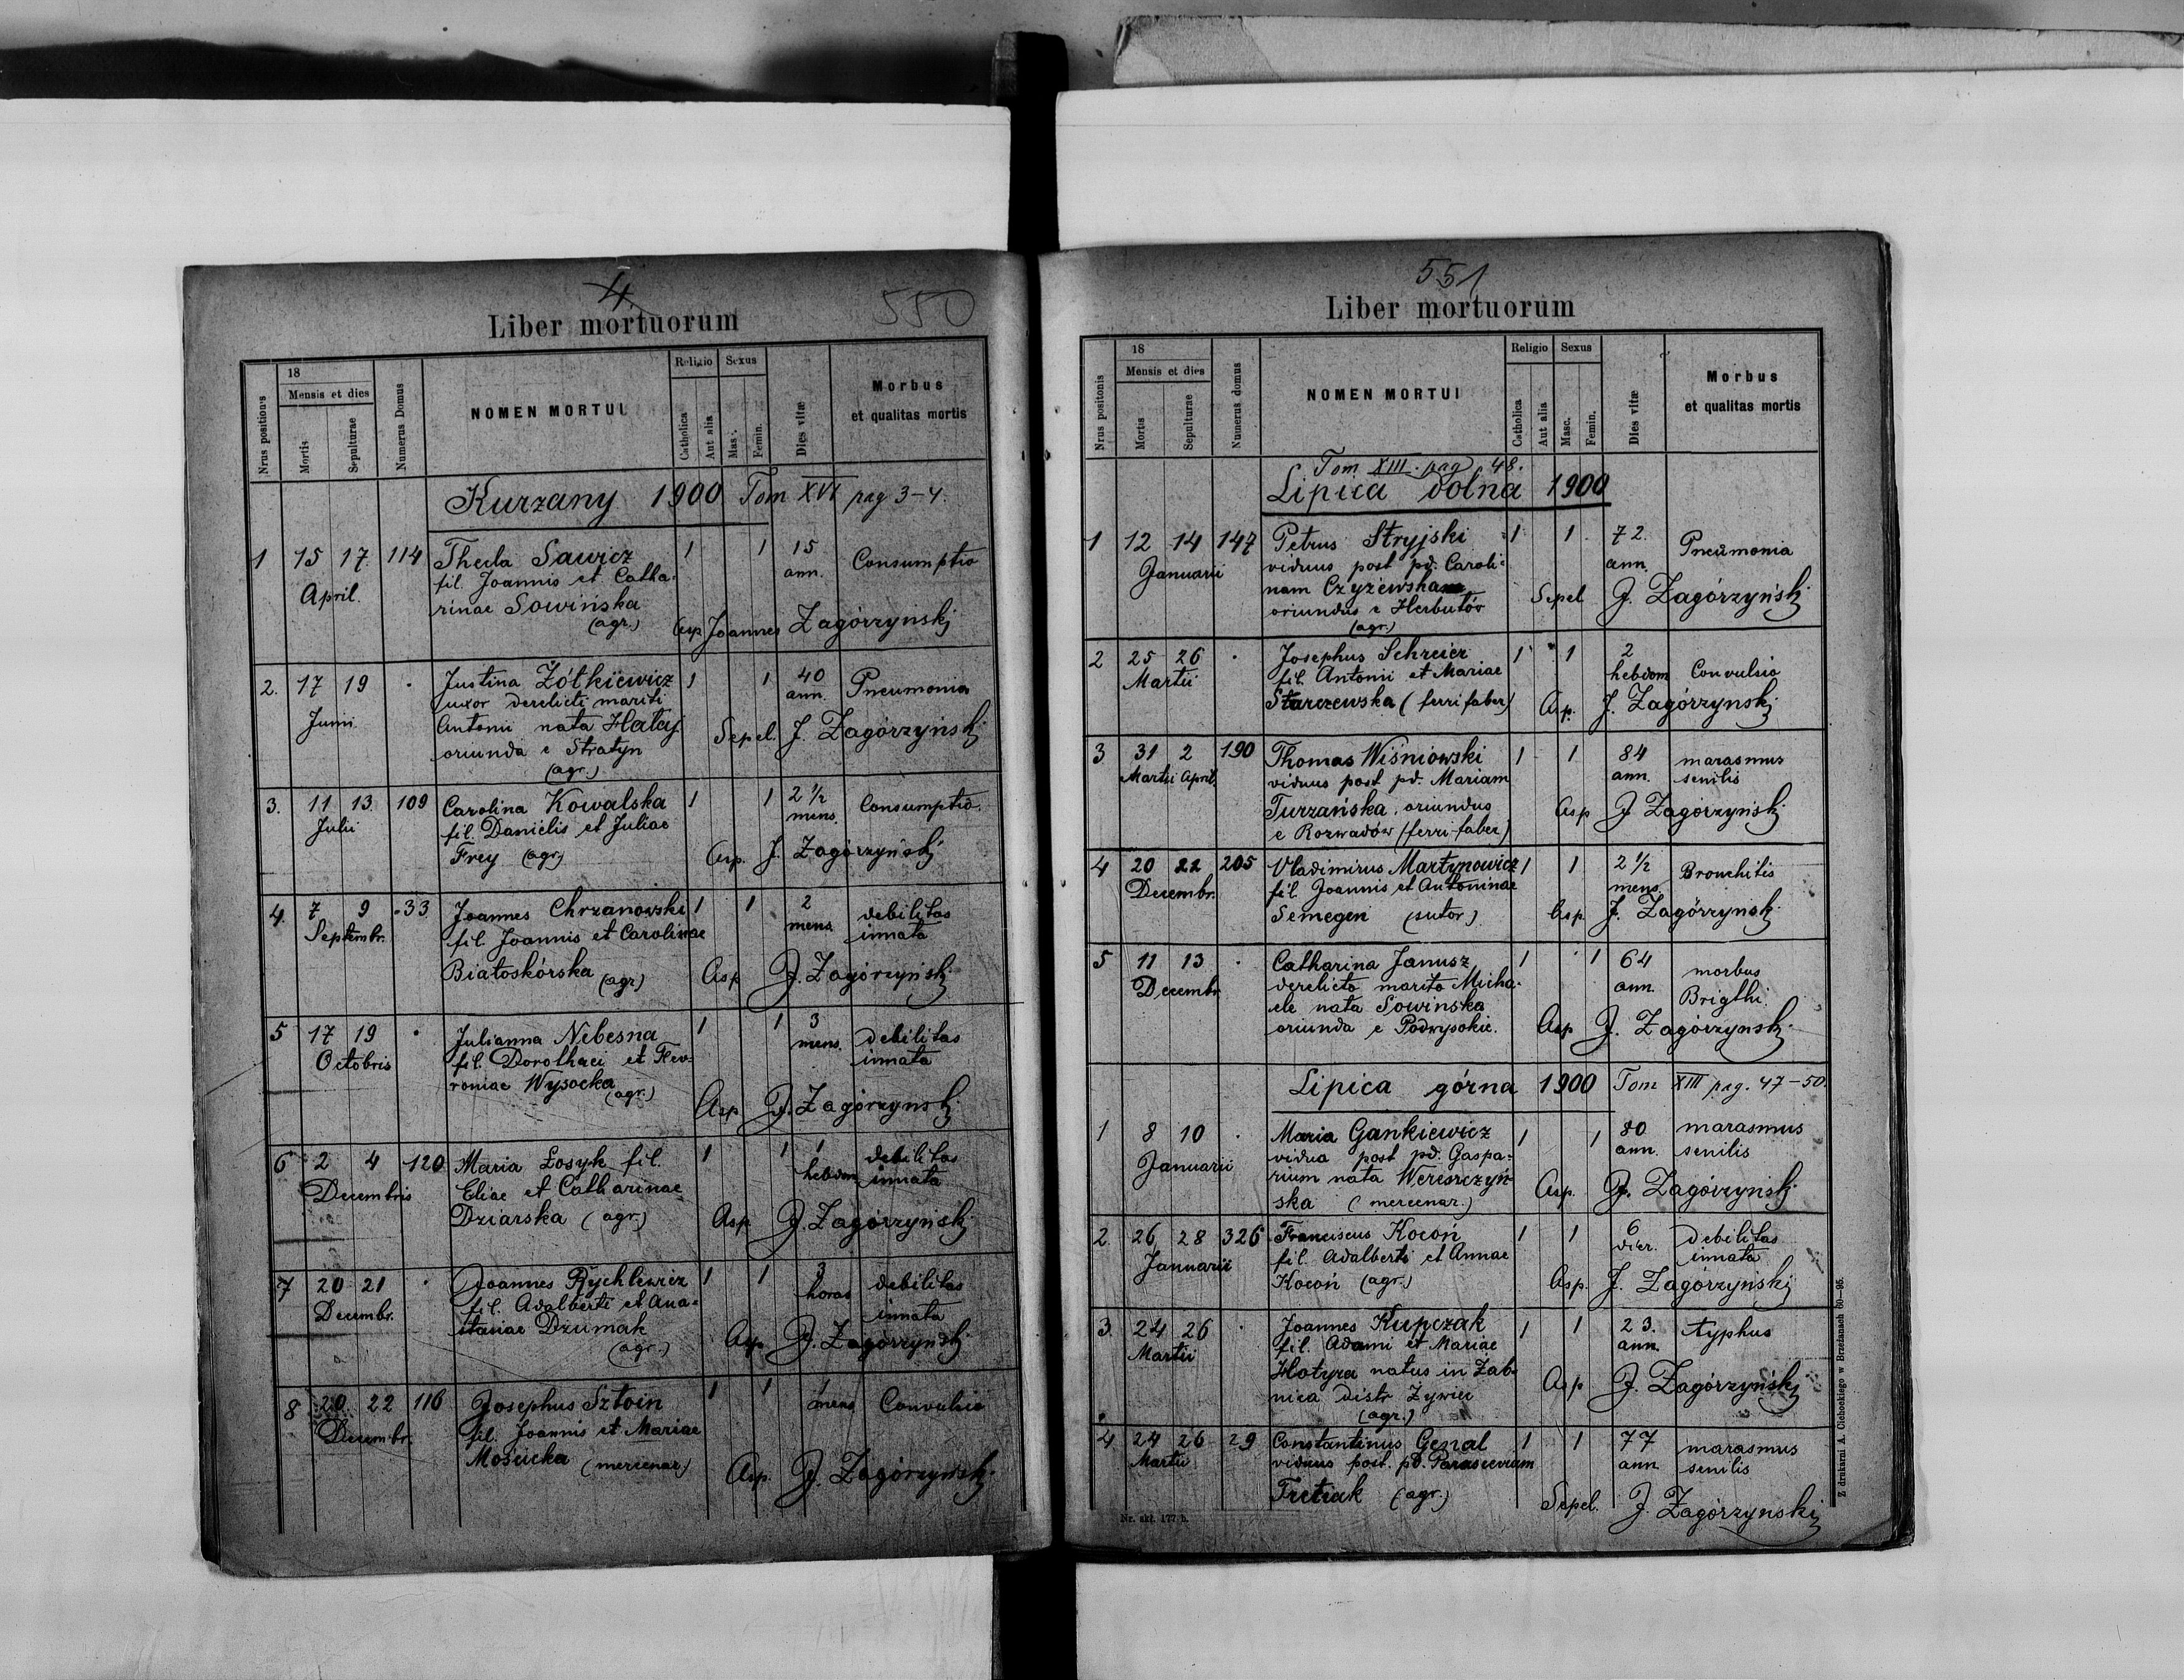 4
550
Liber mortuorum
Nrus positionis
18
Mensis et dies
Mortis
Sepulturae
Numerus Domus
NOMEN MORTUI
Religio
Catholica
Aut alia
Sexus
Masc.
Femin.
Dies vitæ
Morbus
et qualitas mortis
Kurzany 1900 Tom XVI pag 3-4.
1 15 17 114 Thecla Sawicz 1 1 15 Consumptio
April. fil. Joannis et Catha- ann.
rinae Sowińska
(agr.) Asp Joannes Zagórzyński
2. 17 19 . Justina Żółkiewicz 1 1 40 Pneumonia
Junii uxor derelicti mariti ann.
Antonii nata Hałaj Sepel. J. Zagórzyński
oriunda e Stratyn
(agr.)
3. 11 13. 109 Carolina Kowalska 1 1 2 1/2 Consumptio.
Julii fil. Danielis et Juliae mens.
Frey (agr.) Asp. J. Zagórzyński
4. 7 9 33 Joannes Chrzanowski 1 1 2 debilitas
Septembr. fil. Joannis et Carolinae mens. innata
Białoskórska (agr) Asp J. Zagórzyński
5 17 19 . Julianna Nebesna 1 1 3 debilitas
Octobris fil. Dorothaei et Fev- mens. innata
roniae Wysocka (agr.)
Asp J. Zagórzyński
6 2 4 120 Maria Łosyk fil. 1 1 1 debilitas
Decembris Eliae et Catharinae hebdom. innata
Dziarska (agr.) Asp. J. Zagórzyński
7 20 21 . Joannes Rychlewicz 1 1 3 debilitas
Decembr. fil. Adalberti et Ana- horas innata
stasiae Dziumak Asp J. Zagórzyński
(agr.)
8 20 22 116 Josephus Sztoin 1 1 1 Convulsio
Decembr. fil. Joannis et Mariae mens
Mościcka (mercenar) Asp. J. Zagórzyński
551
Liber mortuorum
Nrus positonis
18
Mensis et dies
Mortis
Sepulturae
Numerus domus
NOMEN MORTUI
Religio
Catholica
Aut alia
Sexus
Masc.
Femin.
Dies vitæ
Morbus
et qualitas mortis
Tom XIII. pag 48.
Lipica dolna 1900
1 12 14 147 Petrus Stryjski 1 1 72. Pneumonia
Januarii viduus post pd. Caroli- ann.
nam Czyżewska
oriundus e Herbutów Sepel J. Zagórzyński
(agr.)
2 25 26 . Josephus Schreier 1 1 2 Convulsio
Martii fil. Antonii et Mariae hebdom
Starczewska (ferri faber) Asp. J. Zagórzyński
3 31 2 190 Thomas Wiśniowski 1 1 84 marasmus
Martii April. viduus post pd. Mariam ann. senilis
Turzańska, oriundus Asp J Zagórzyński
e Rozwadów (ferri-faber)
4 20 22 205 Vladimirus Martynowicz 1 1 2 1/2 Bronchitis
Decembr. fil. Joannis et Antoninae mens.
Semegen (sutor) Asp J. Zagórzyński
5 11 13 . Catharina Janusz 1 1 64 morbus
Decembr derelicto marito Micha- ann. Brigthi.
ele nata Sowinska
oriunda e Podwysokie. Asp J. Zagórzyński
Lipica górna 1900 Tom XIII pag. 47-50.
1 8 10 . Maria Gankiewicz 1 1 80 marasmus
Januarii vidua post pd. Gaspa- ann. senilis
rium nata Wereszczyń-
ska (mercenar.) Asp. J. Zagórzyński
2. 26 28 326 Franciscus Kocoń 1 1 6 debilitas
Januarii fil. Adalberti et Annae dier. innata
Kocoń (agr.) Asp. J. Zagórzyński
3. 24 26 . Joannes Kupczak 1 1 23. typhus
Martii fil. Adami et Mariae ann.
Hotyra natus in Żab-
nica distr Żywiec Asp J. Zagórzyński
(agr.)
4 24 26 29 Constantinus Genal 1 1 77 marasmus
Martii viduus post. pd. Parasceviam ann senilis
Tretiak (agr.) Sepel. J. Zagórzyński
Nr. skł. 177 b.
Z drukarni A. Ciehockiego w Brzeżanach 60—95.